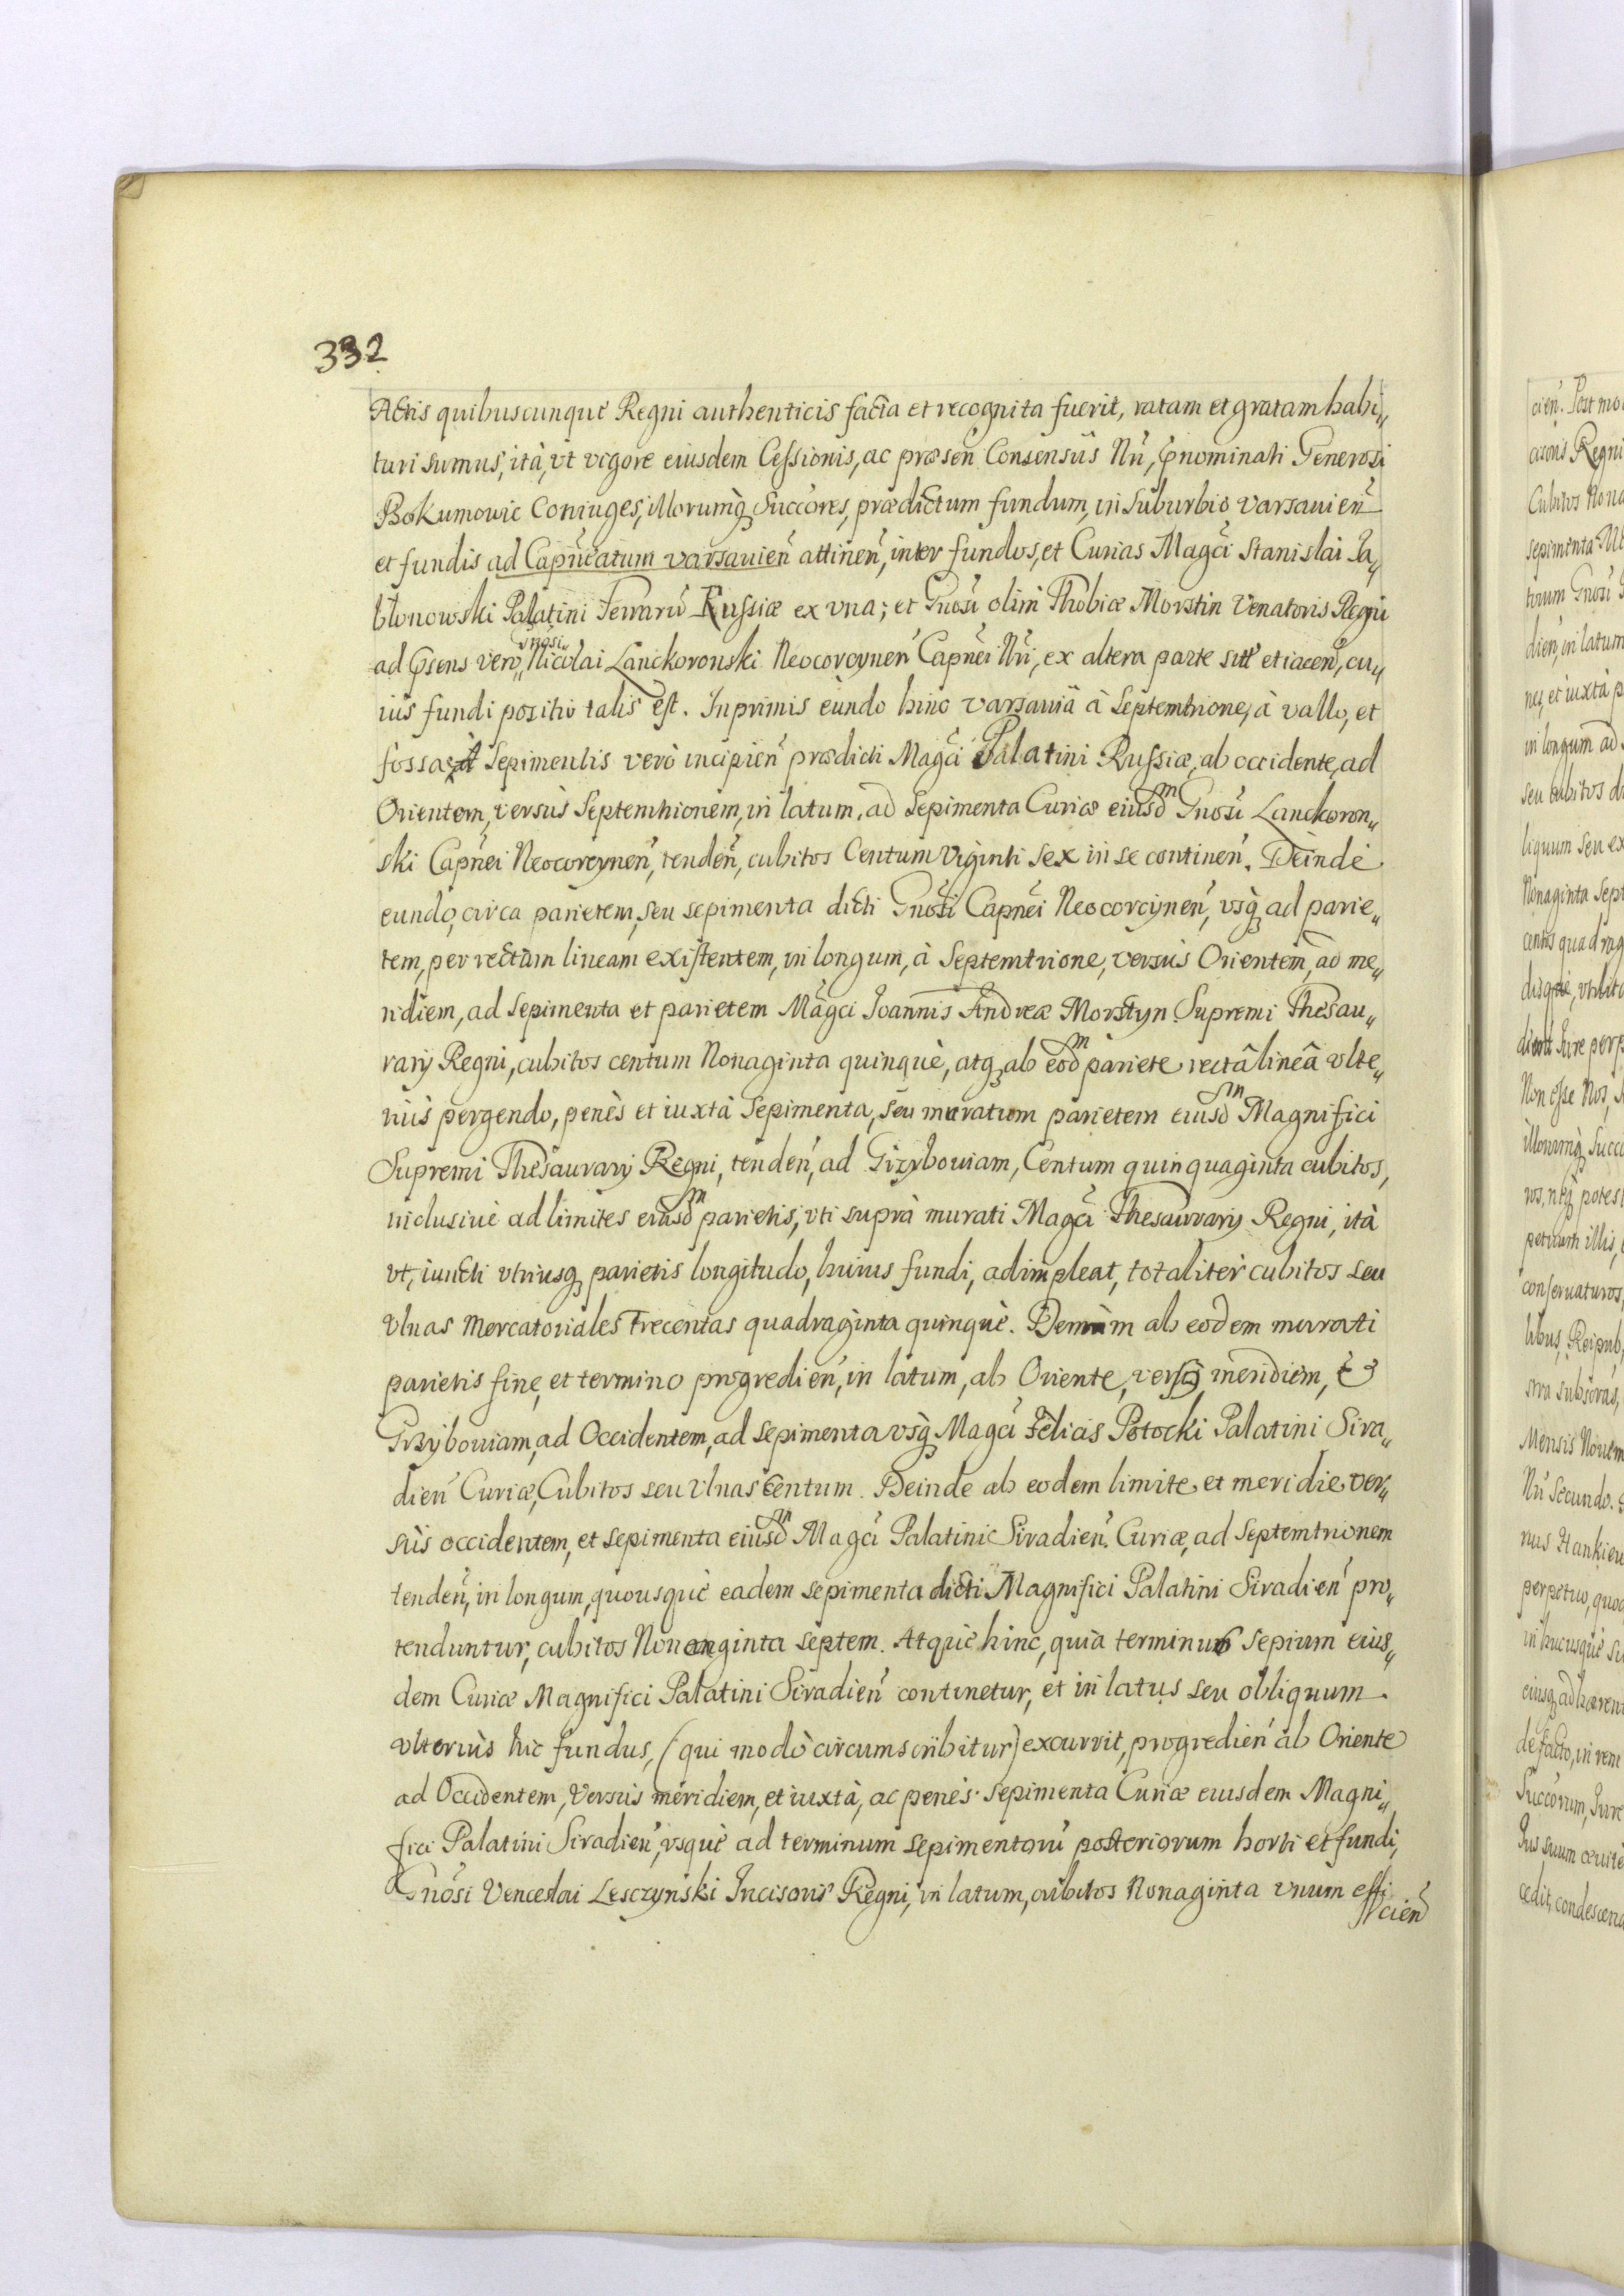 332
Actis quibuscunque Regni authenticis facta et recognita fuerit, ratam et gratam habi„
turi sumus, ità, vt vigore eiusdem Cessionis, ac præsen̄ Consensûs Nri, p̄nominati Generosi
Bokumowic Coniuges, illorumq̀ꝫ Succōres, prædictum fundum, in Suburbio Varsauien̄
et fundis ad Capn̄eatum Varsauien̄ attinen̄, inter fundos, et Curias Magcī Stanislai Ja„
błonowski Palatini Terrarū Russiæ ex vna; et Gnosi olim Thobiæ Morstin Venatoris Regni
ad p̄sens verò „Gnosi„ Nicolai Lanckoronski Neocorcynen̄ Capn̄ei Nri, ex altera parte sitī et iacen̄, cu„
ius fundi positio talis est. Inprimis eundo hinc Varsauiâ à Septemtrione, à vallo, et
fossa, à Sepimentis verò incipien̄ prædicti Magcī Palatini Russiæ, ab occidente, ad
Orientem, versùs Septemtrionem, in latum, ad Sepimenta Curiæ eiusdm Gnosi Lanckoron„
ski Capn̄ei Neocorcynen̄, tenden̄, cubitos Centum Viginti Sex in se continen̄. Deinde
eundo, circa parietem, seu sepimenta dicti Gnosi Capn̄ei Neocorcynen̄, vsq̀ꝫ ad parie„
tem, per rectam lineam existentem, in longum, à Septemtrione, versùs Orientem, ad me„
ridiem, ad Sepimenta et parietem Magcī Joannis Andreæ Morstyn Supremi Thesau„
rarij Regni, cubitos centum Nonaginta quinquè, atqꝫ ab eodm pariete rectâ lineâ vlte„
riùs pergendo, penès et iuxtà Sepimenta, seu muratum parietem eiusdm Magnifici
Supremi Thesaurarij Regni, tenden̄, ad Grzyboviam, Centum quinquaginta cubitos,
inclusiuè ad limites eiusdm parietis, vti suprà murati Magcī Thesaurarij Regni, ità
vt, iuncti vtriusqꝫ parietis longitudo, huius fundi, adimpleat, totalitèr cubitos seu
Vlnas Mercatoriales Trecentas quadraginta quinquè. Demùm ab eodem murati
parietis fine, et termino progredien̄, in latum, ab Oriente, versꝫ meridiem, et
Grzyboviam, ad Occidentem, ad Sepimenta vsq̀ꝫ Magcī Felicis Potocki Palatini Sira„
dien̄ Curiæ, Cubitos seu Vlnas Centum. Deinde ab eodem limite, et meridie ver„
sùs occidentem, et sepimenta eiusdm Magcī Palatini Siradien̄. Curiæ, ad Septemtrionem
tenden̄, in longum, quousquè eadem sepimenta dicti Magnifici Palatini Siradien̄ pro„
tenduntur, cubitos Nonaginta septem. Atquè hinc, quia terminus Sepium eius„
dem Curiæ Magnifici Palatini Siradien̄ continetur, et in latus seu obliquum
vlteriùs hic fundus, (qui modò circumscribitur) excurrit, progredien̄ ab Oriente
ad Occidentem, Versùs meridiem, et iuxtà, ac penès Sepimenta Curiæ eiusdem Magni„
fici Palatini Siradien̄, vsquè ad terminum sepimentorū posteriorum horti et fundi,
Gnosi Venceslai Lesczynski Incisoris Regni, in latum, cubitos Nonaginta vnum effi
cien̄